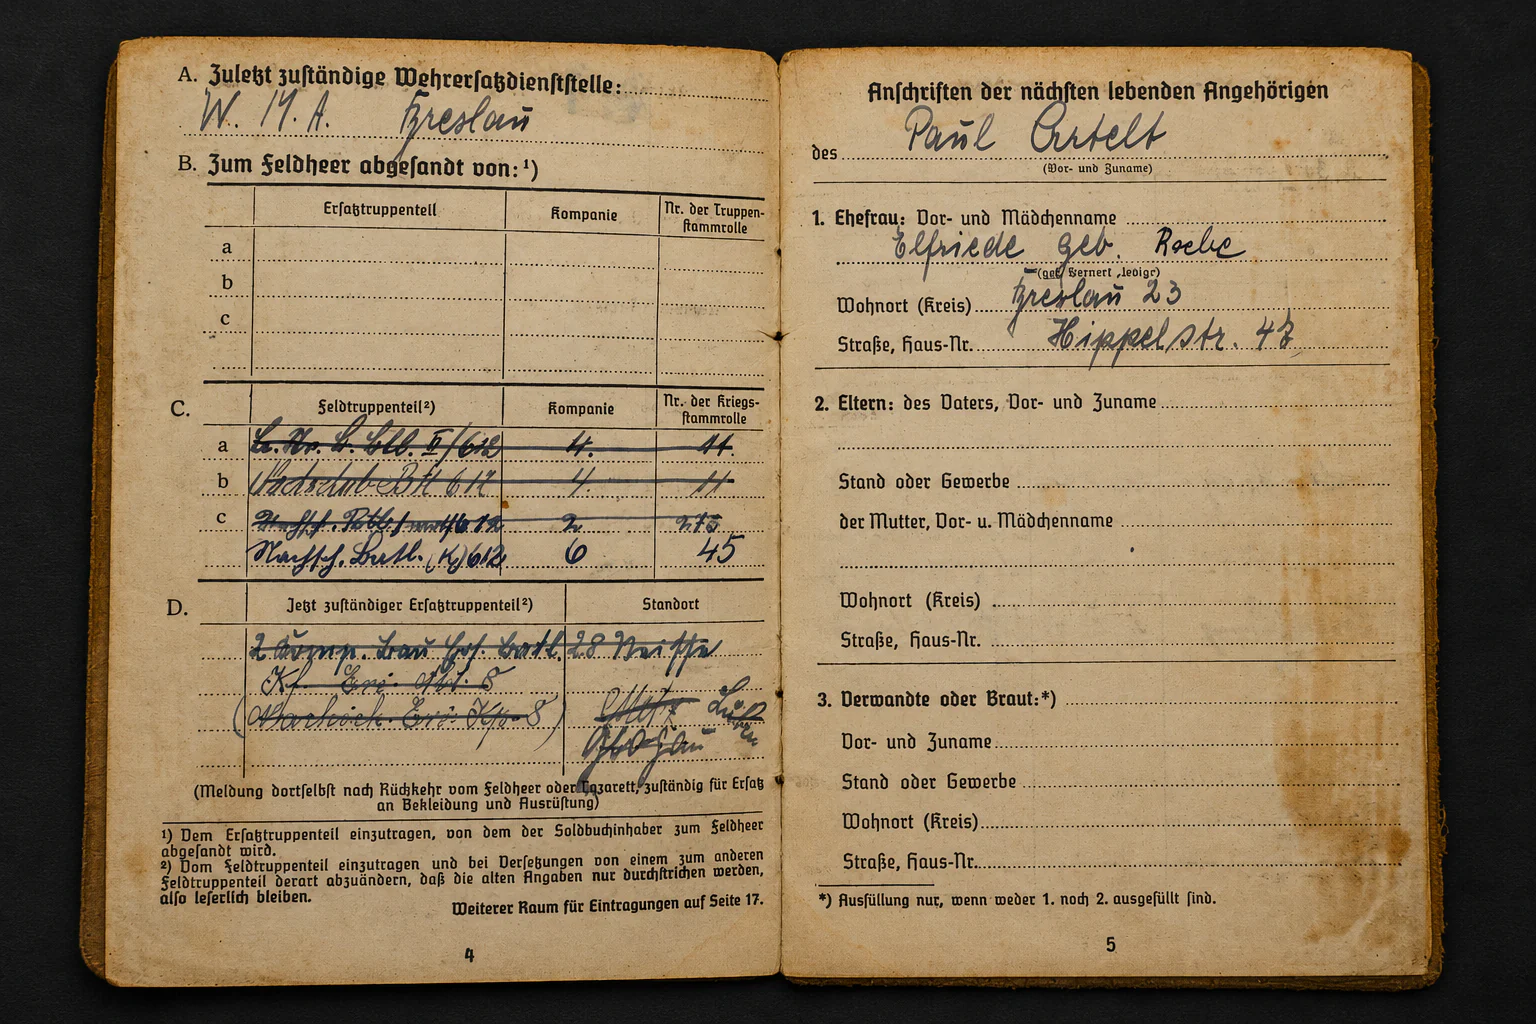 A. Zuletzt zuständige Wehrersatzdienststelle:
W. M. A. Breslau
B. Zum Feldheer abgesandt von:¹)
Ersatztruppenteil Kompanie Nr. der Truppen-
stammrolle
a
b
c
C. Feldtruppenteil²) Kompanie Nr. der Kriegs-
stammrolle
a II/612 4. 11.
b 612 4. 11
c 612 2
Nachsch. Batl. (K) 612 6 45
D. Jetzt zuständiger Ersatztruppenteil²) Standort
2 Komp. Bau Ers. Batl. 28 Neisse
Kf. Ers. Abt. 8
( Ers. Kp. 8 ) Metz
Glogau
(Meldung dortselbst nach Rückkehr vom Feldheer oder Lazarett, zuständig für Ersatz
an Bekleidung und Ausrüstung)
¹) Dem Ersatztruppenteil einzutragen, von dem der Soldbuchinhaber zum Feldheer
abgesandt wird.
²) Vom Feldtruppenteil einzutragen und bei Versetzungen von einem zum anderen
Feldtruppenteil derart abzuändern, daß die alten Angaben nur durchstrichen werden,
also leserlich bleiben.
Weiterer Raum für Eintragungen auf Seite 17.
4
Anschriften der nächsten lebenden Angehörigen
des Paul Artelt
(Vor- und Zuname)
1. Ehefrau: Vor- und Mädchenname
Elfriede geb.
Wohnort (Kreis) Breslau 23
Straße, Haus-Nr. Hippelstr.
2. Eltern: des Vaters, Vor- und Zuname
Stand oder Gewerbe
der Mutter, Vor- u. Mädchenname
Wohnort (Kreis)
Straße, Haus-Nr.
3. Verwandte oder Braut:*)
Vor- und Zuname
Stand oder Gewerbe
Wohnort (Kreis)
Straße, Haus-Nr.
*) Ausfüllung nur, wenn weder 1. noch 2. ausgefüllt sind.
5